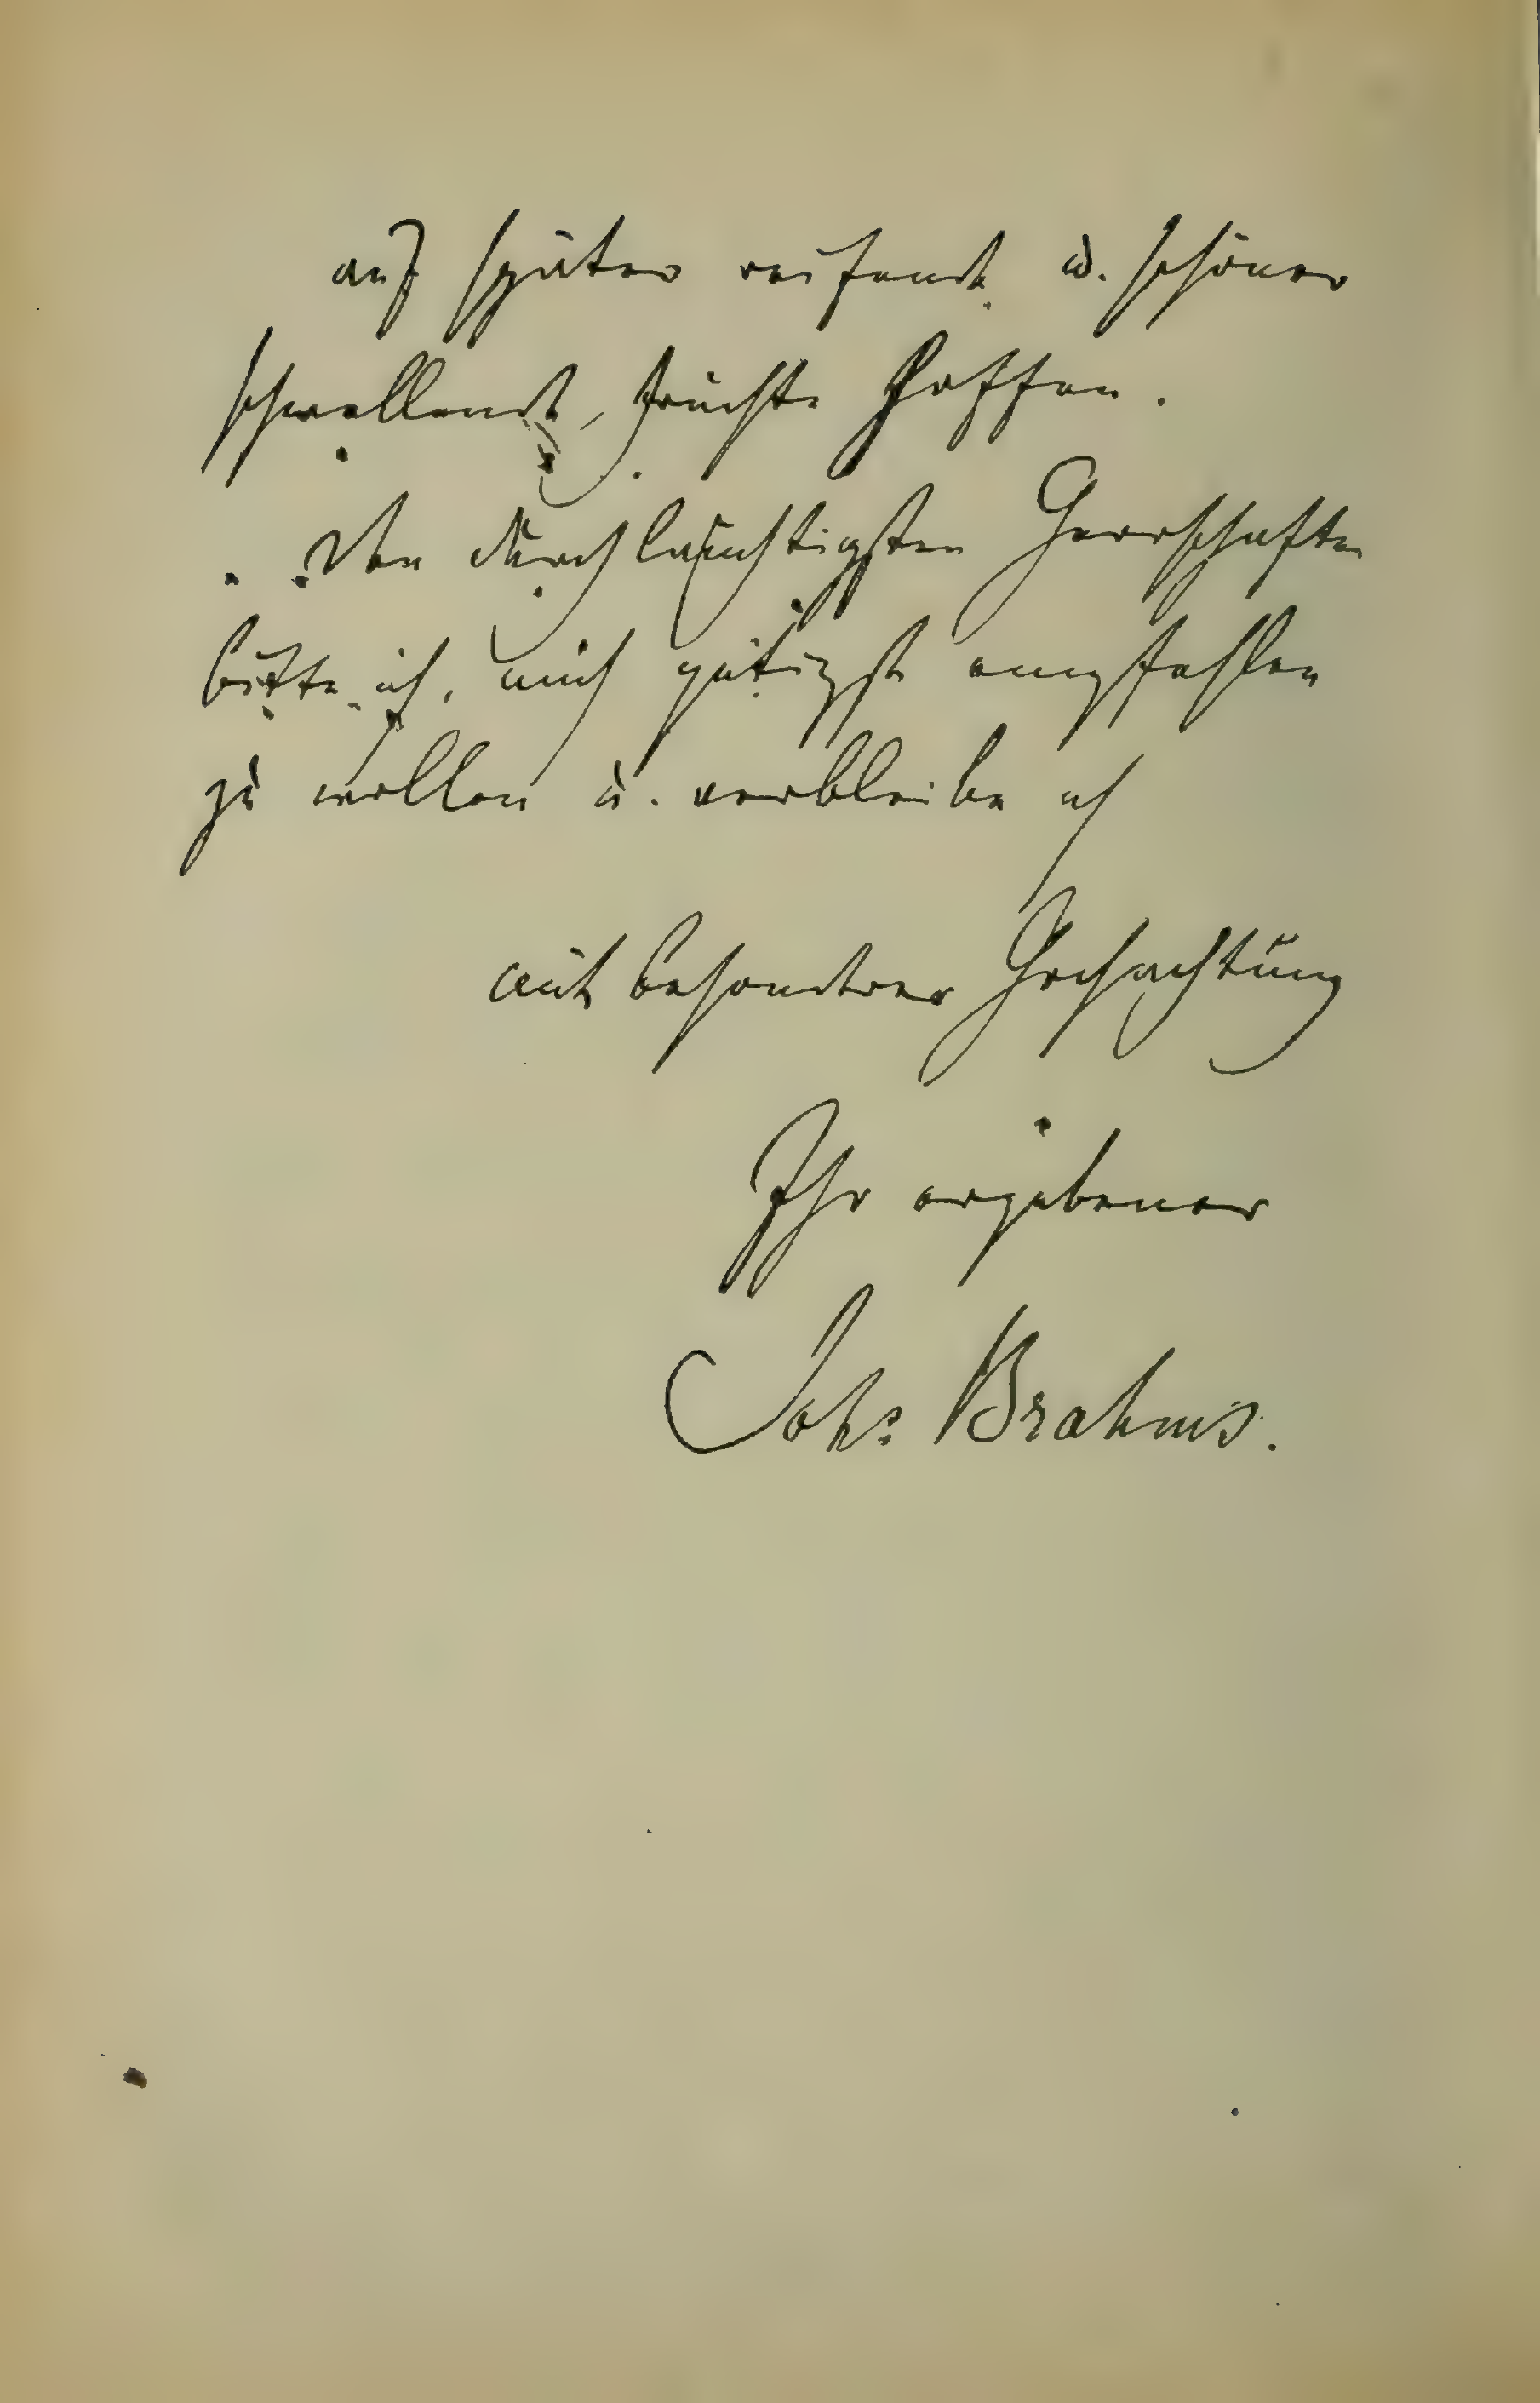 auf später reifende u. schöner
schwellende Früchte hoffen.
Den durchlauchtigsten Herrschaften
bitte ich, mich gütigst empfehlen
zu wollen u. verbleibe ich
mit besondrer Hochachtung
Ihr ergebener
Johs Brahms.